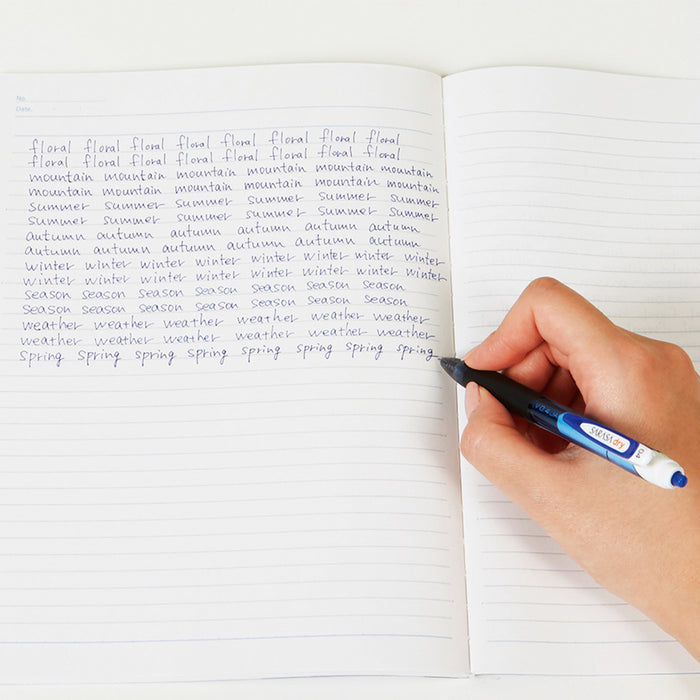 No.
Date
floral floral floral floral floral floral floral floral
floral floral floral floral floral floral floral floral
mountain mountain mountain mountain mountain mountain
mountain mountain mountain mountain mountain mountain
summer summer summer summer summer summer
summer summer summer summer summer summer
autumn autumn autumn autumn autumn autumn
autumn autumn autumn autumn autumn autumn
winter winter winter winter winter winter winter winter
winter winter winter winter winter winter winter winter
season season season season season season season
season season season season season season season
weather weather weather weather weather weather
weather weather weather weather weather weather
spring spring spring spring spring spring spring spring
SARASA dry
0.4